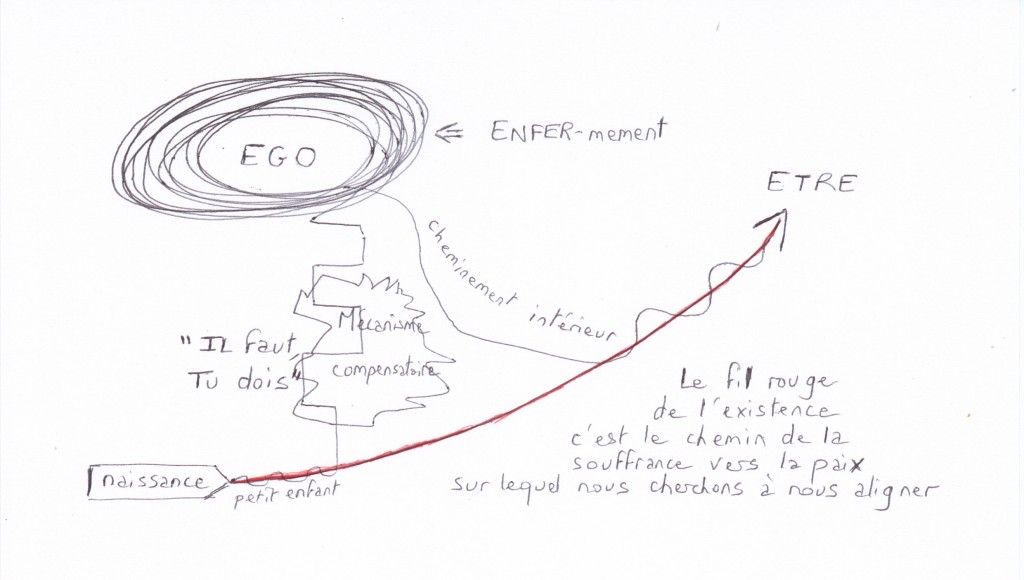 EGO
ENFER-mement
ETRE
cheminement intérieur
Mécanisme
compensatoire
"IL faut
Tu dois"
naissance
petit enfant
Le fil rouge
de l'existence
c'est le chemin de la
souffrance vers la paix
sur lequel nous cherchons à nous aligner